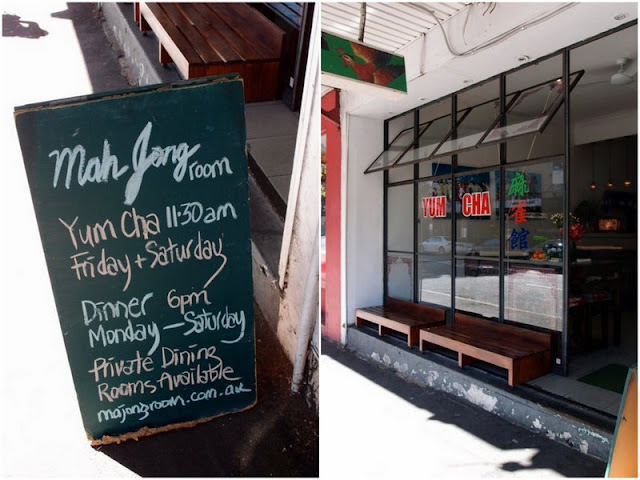 Mah Jong
room
Yum Cha 11·30am
Friday + Saturday
Dinner 6pm
Monday — Saturday
Private Dining
Rooms Available
majongroom.com.au
YUM CHA
麻雀館